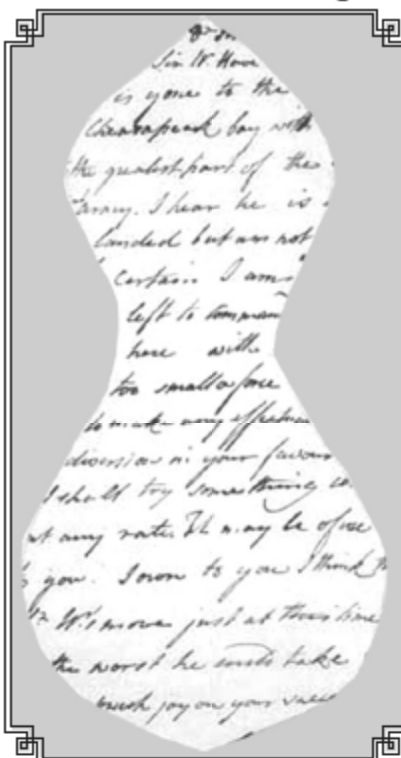 Sir W. Howe
is gone to the
Chesapeak bay with
the greatest part of the
army. I hear he is
landed but am not
certain I am
left to comman
here with
too small a force
to make any effectua
diversion in your favour
I shall try something
at any rate. It may be of use
to you. I own to you I think
Wm's move just at this time
the worst he could take
much joy on your